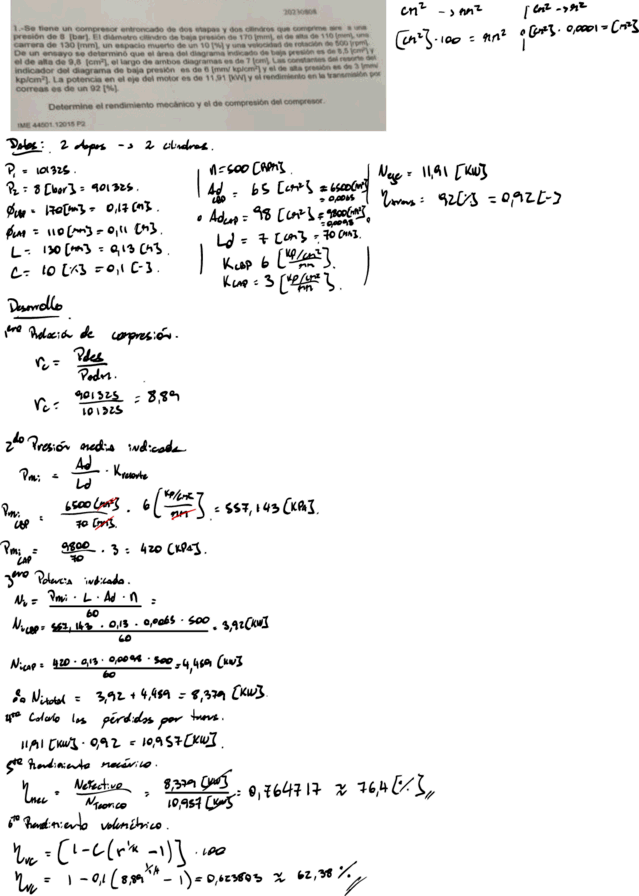 cm² -> mm² | cm² -> m²
[cm²]·100 = mm² [cm²]·0,0001 = [m²]
20230808
1.-Se tiene un compresor entroncado de dos etapas y dos cilindros que comprime aire a una
presión de 8 [bar]. El diámetro cilindro de baja presión de 170 [mm], el de alta de 110 [mm], una
carrera de 130 [mm], un espacio muerto de un 10 [%] y una velocidad de rotación de 500 [rpm].
De un ensayo se determinó que el área del diagrama indicado de baja presión es de 6,5 [cm²] y
el de alta de 9,8 [cm²], el largo de ambos diagramas es de 7 [cm], Las constantes del resorte del
indicador del diagrama de baja presión es de 6 [mm/ kp/cm²] y el de alta presión es de 3 [mm/
kp/cm²]. La potencia en el eje del motor es de 11,91 [kW] y el rendimiento en la transmisión por
correas es de un 92 [%].
Determine el rendimiento mecánico y el de compresión del compresor.
IME 44501.12015 P2
Datos: 2 etapas -> 2 cilindros.
P₁ = 101325
P₂ = 8 [bar] = 901325.
ØCBP = 170[mm] = 0,17 [m].
ØCAP = 110 [mm] = 0,11 [m].
L = 130[mm] = 0,13 [m].
C = 10 [%] = 0,1 [-].
n = 500 [RPM].
Ad CBP = 65 [cm²] = 6500[mm²] = 0,0065
AdCAP = 98 [cm²] = 9800[mm²] = 0,0098
Ld = 7 [cm] = 70 [mm].
KCBP 6 [kp/cm²/mm].
KCAP = 3 [kp/cm²/mm].
Neje = 11,91 [KW]
ηtrans = 92[%] = 0,92 [-]
Desarrollo
1ero Relación de compresión.
rc = Pdes/Padm.
rc = 901325/101325 = 8,89
2do Presión media indicada
Pmi = Ad/Ld · Kresorte
Pmi CBP = 6500 [mm²]/70 [mm] · 6 [kp/cm²/mm] = 557,143 [KPa].
Pmi CAP = 9800/70 · 3 = 420 [KPa].
3ero Potencia indicada.
Ni = Pmi · L · Ad · n/60 =
NiCBP = 557,143 · 0,13 · 0,0065 · 500/60 = 3,92[KW]
NiCAP = 420 · 0,13 · 0,0098 · 500/60 = 4,459 [KW]
∴ Nitotal = 3,92 + 4,459 = 8,379 [KW].
4to Calculo las pérdidas por trans.
11,91 [KW] · 0,92 = 10,957 [KW].
5to Rendimiento mecánico.
ηmec = Nefectivo/Nteorico = 8,379 [KW]/10,957 [KW] = 0,764717 ≈ 76,4 [%]
6to Rendimiento volumétrico.
ηvc = [1 - C (r^1/k - 1)] · 100
ηvc = 1 - 0,1 (8,89^1/1,4 - 1) = 0,623803 ≈ 62,38 %.